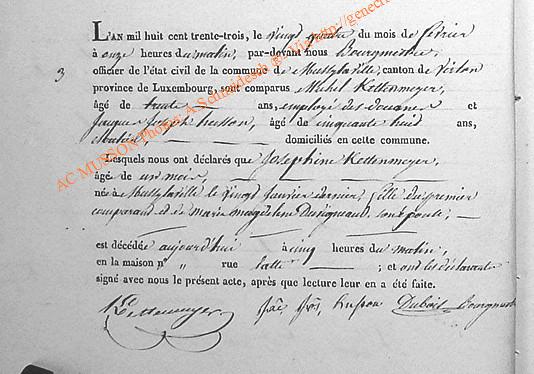 L'AN mil huit cent trente-trois, le vingt quatre du mois de février
à onze heures du matin, par-devant nous Bourgmestre,
officier de l'état civil de la commune de Mussylaville, canton de Virton
3
province de Luxembourg, sont comparus Michel Kettenmeyer,
âgé de trente ans, employé des douanes et
Jacques Joseph husson, âgé de cinquante huit ans,
domiciliés en cette commune.
Lesquels nous ont déclarés que Josephine Kettenmeyer,
âgée de un mois,
née à Mussylaville le vingt Janvier dernier, fille du premier
comparant et de Marie Magdeleine sont
est décédée aujourd'hui à cinq heures du matin,
en la maison n° " rue ; et ont les déclarants
signé avec nous le présent acte, après que lecture leur en a été faite.
Kettenmeyer Jac. Jos. husson Dubois Bourgmestre
AC MUSSON Photos A Schneidesch